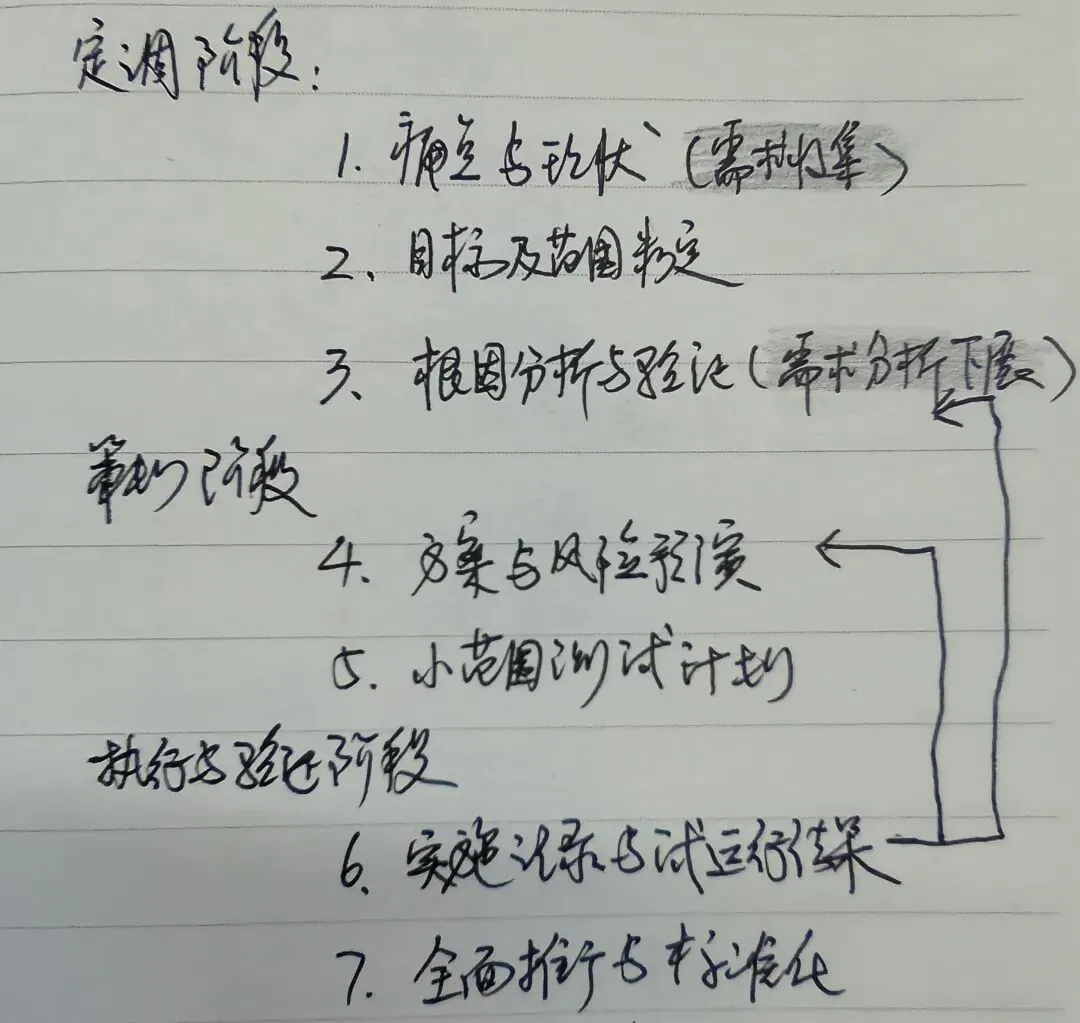 定调阶段:
1. 痛点与现状 (需求收集)
2、目标及范围判定
3、根因分析与验证(需求分析下展)
筹划阶段
4、方案与风险预演
5. 小范围测试计划
执行与验证阶段
6、实施记录与试运行结果
7. 全面推行与标准化